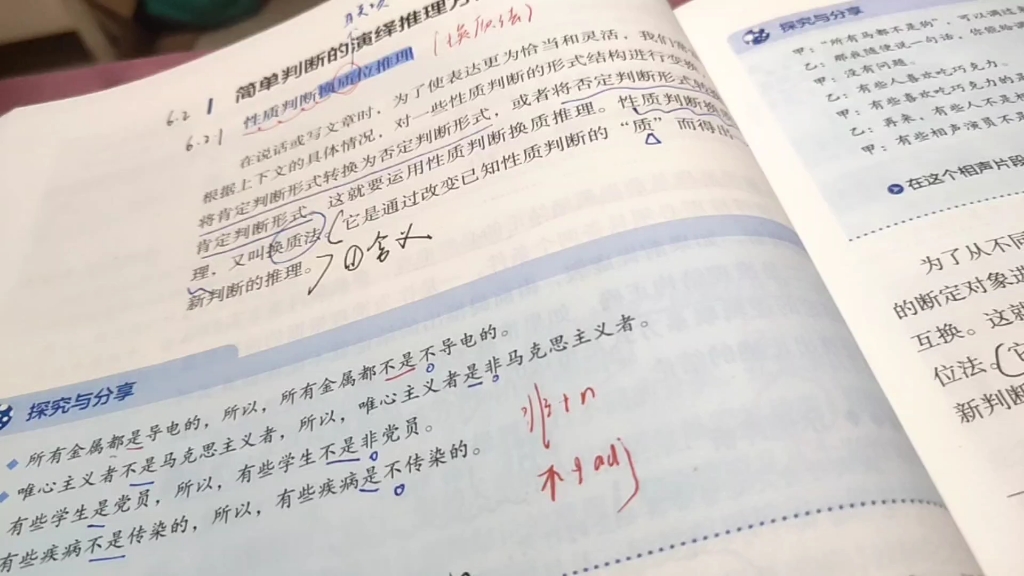 6.2 简单判断的演绎推理方
6.21 性质判断换质位推理 (换质法)
在说话或写文章时，为了使表达更为恰当和灵活，我们
根据上下文的具体情况，对一些性质判断的形式结构进行变换
将肯定判断形式转换为否定判断形式，或者将否定判断形式
肯定判断形式，这就要运用性质判断换质推理。性质判断换
理，又叫换质法（它是通过改变已知性质判断的“质”而得出
新判断的推理。 ①含义
探究与分享
所有金属都是导电的，所以，所有金属都不是不导电的。
唯心主义者不是马克思主义者，所以，唯心主义者是非马克思主义者。
有些学生是党员，所以，有些学生不是非党员。
有些疾病不是传染的，所以，有些疾病是不传染的。
非+n
不+adj
探究与分享
甲：“所有马都不是狗”，可以
乙：那我随便说一句话，你能
甲：没有问题。
乙：有些人喜欢吃巧克力。
甲：有些喜欢吃巧克力的
乙：再来，有些人不是
甲：有些相声演员不是
在这个相声片段
为了从不同
的断定对象
互换。这就
位法。（它
新判断